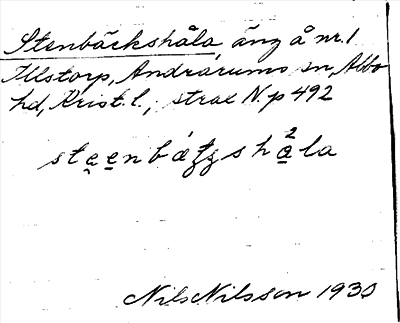 Stenbäckshåla, äng å nr. 1
Illstorp, Andrarums sn, Albo
hd, Krist. l., strax N. p 492
steenbæʒgshåla
Nils Nilsson 1930